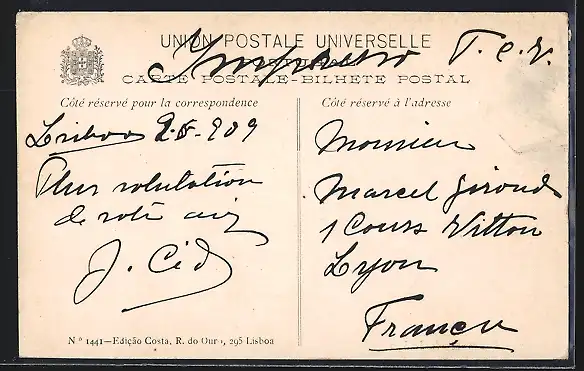 UNION POSTALE UNIVERSELLE
T. C. V.
CARTE POSTALE-BILHETE POSTAL
Côté réservé pour la correspondence
Lisboa 2-5-909
de
J. Cid
Côté réservé à l'adresse
Monsieur
Marcel Giroud
1 Cours Vitton
Lyon
France
Nº 1441—Edição Costa, R. do Ouro, 295 Lisboa